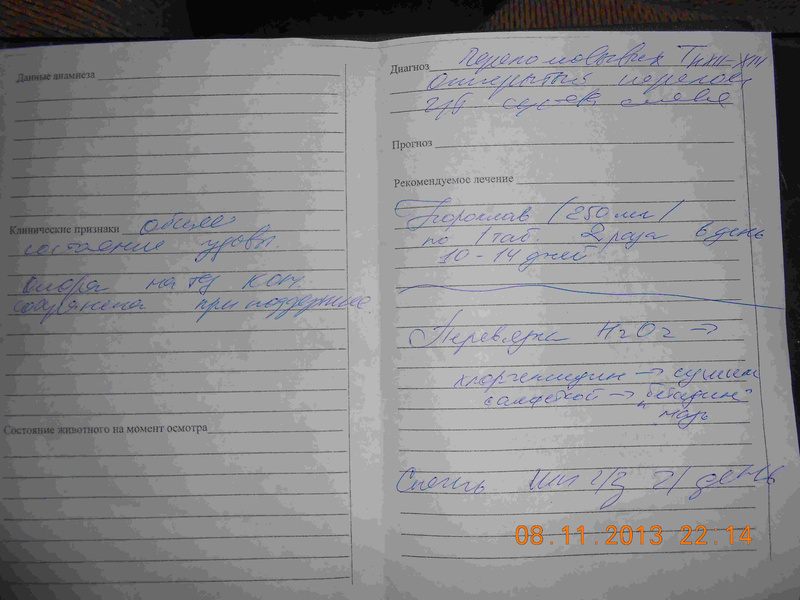 Данные анамнеза
Клинические признаки общее
состояние удовл
Опора на тд кон.
сохранена при поддержке
Состояние животного на момент осмотра
Диагноз
открытый перелом
слева
Прогноз
Рекомендуемое лечение
(250 мг)
по 1 таб. 2 раза в день
10 - 14 дней
Перевязка H2O2 →
хлоргексидин → сушим
салфеткой → "бетадин"
мазь
ч/з день
08.11.2013 22:14